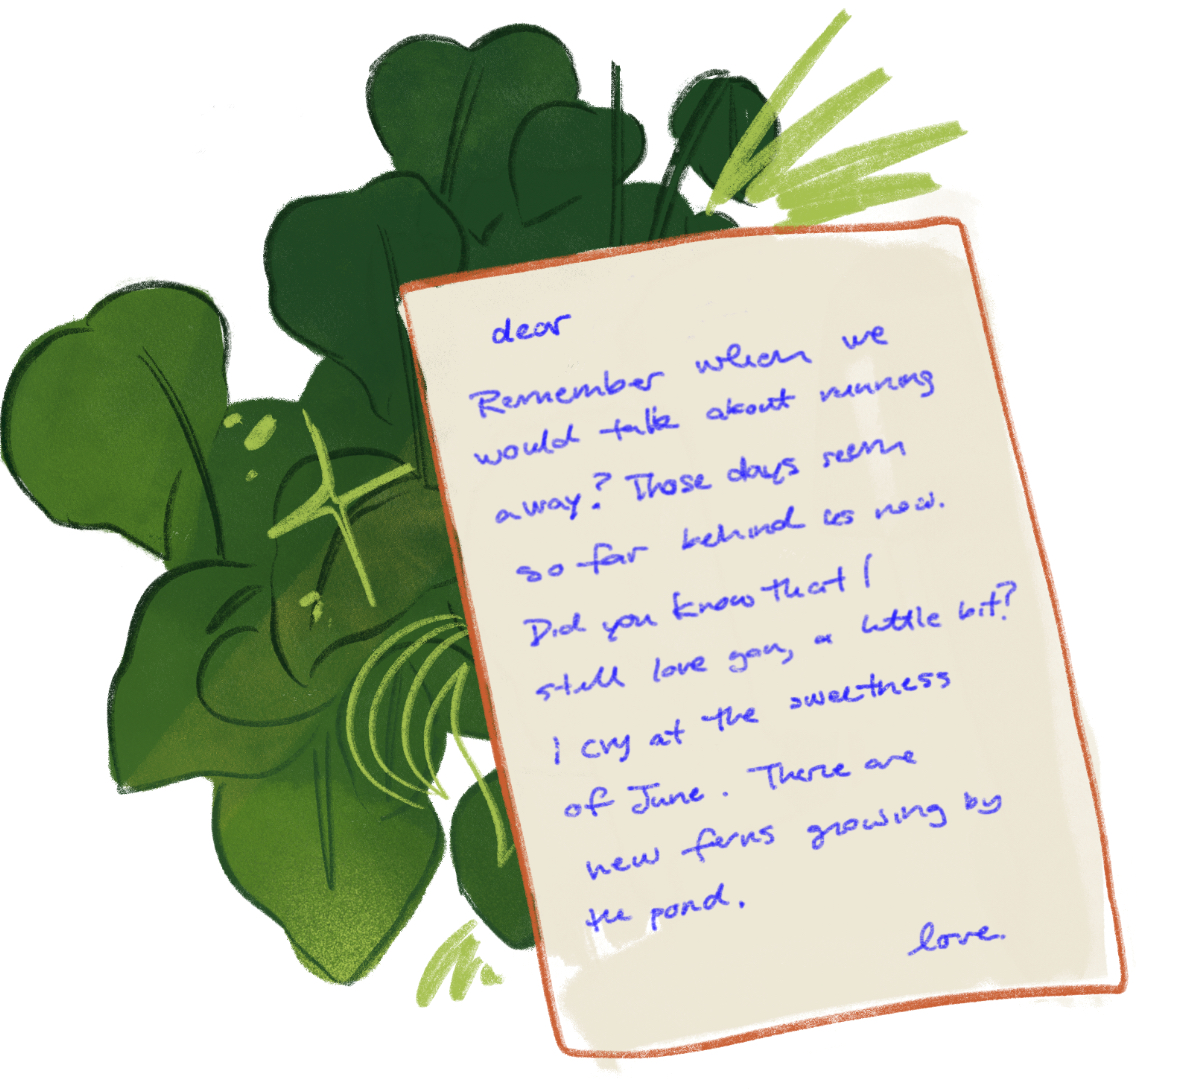 dear
Remember when we
would talk about running
away? Those days seem
so far behind us now.
Did you know that I
still love you, a little bit?
I cry at the sweetness
of June. There are
new ferns growing by
the pond.
love.